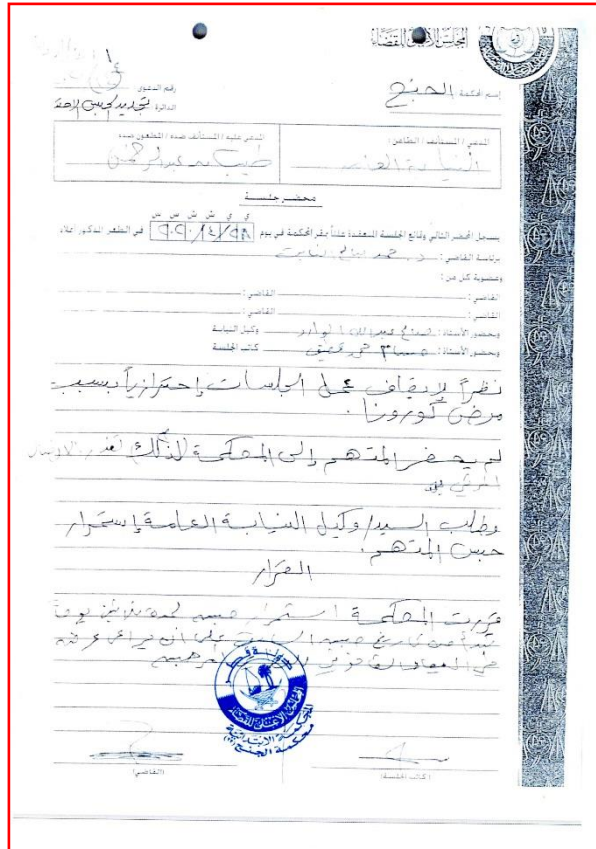 المجلس الأعلى للقضاء
إسم المحكمة الجنح
رقم الدعوى :
الدائرة تجديد الحبس
المدعي / المستأنف / الطاعن :
النيابة العامة
المدعى عليه / المستأنف ضده / المطعون ضده
طيب بن عبدالرحمن
محضر جلسة
ي ي ش ش س س
يسجل المحضر التالي وقائع الجلسة المنعقدة علناً بمقر المحكمة في يوم في الظهر المذكور أعلاه
برئاسة القاضي : د. حمد
وعضوية كل من :
القاضي : القاضي :
القاضي : القاضي :
وبحضور الأستاذ : وكيل النيابة
وبحضور الأستاذ : حسام كاتب الجلسة
نظراً لإيقاف عمل الجلسات إحترازياً بسبب
مرض كورونا .
لم يحضر المتهم إلى المحكمة لذلك تعذر الاتصال
المرئي به
وطلب السيد/ وكيل النيابة العامة إستمرار
حبس المتهم.
القرار
قررت المحكمة استمرار حبسه لمدة ثلاثين يوماً
تبدأ من تاريخ حبسه السابق على أن يراعى عرضه
في الميعاد القانوني
دولة قطر
المجلس الأعلى للقضاء
المحكمة الابتدائية
محكمة الجنح
(كاتب الجلسة) (القاضي)